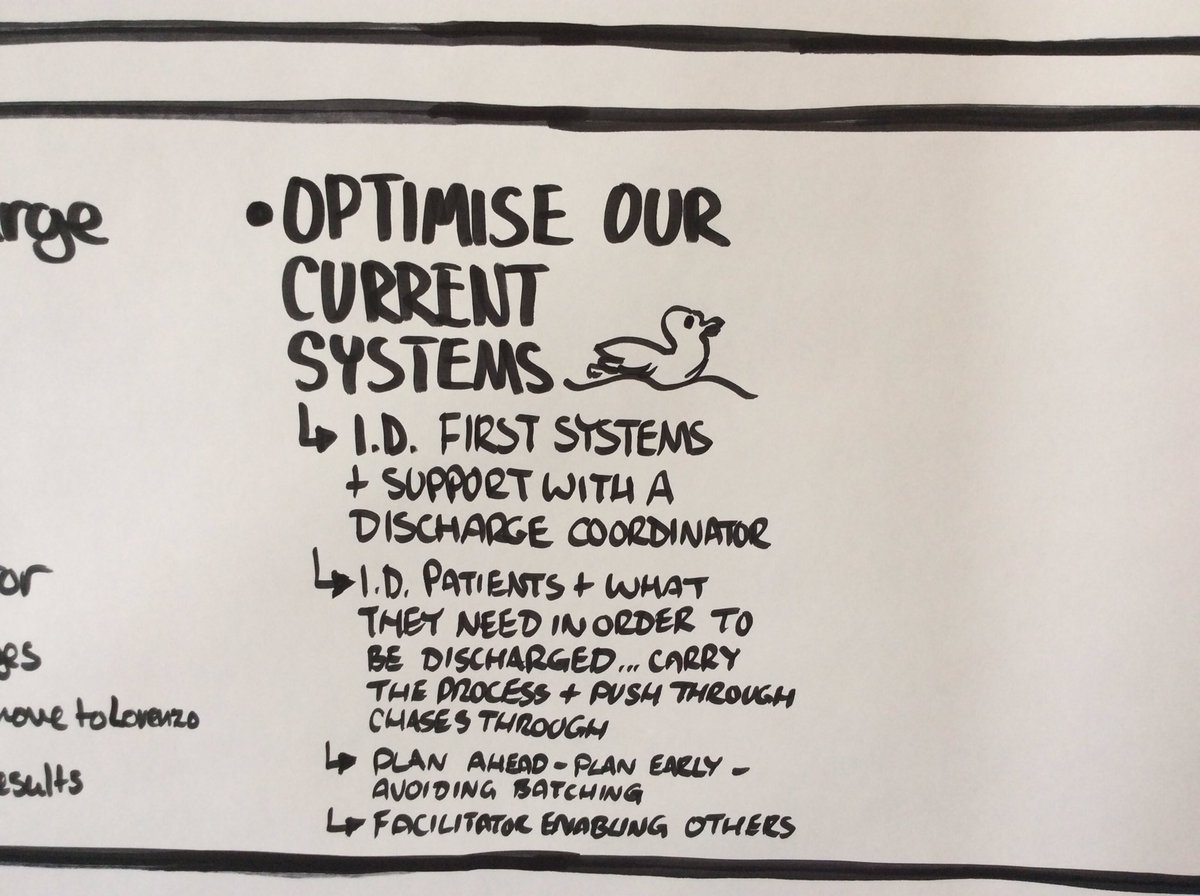 • OPTIMISE OUR
CURRENT
SYSTEMS
↳ I.D. FIRST SYSTEMS
+ SUPPORT WITH A
DISCHARGE COORDINATOR
↳ I.D. PATIENTS + WHAT
THEY NEED IN ORDER TO
BE DISCHARGED... CARRY
THE PROCESS + PUSH THROUGH
CHASES THROUGH
↳ PLAN AHEAD - PLAN EARLY -
AVOIDING BATCHING
↳ FACILITATOR ENABLING OTHERS
to Lorenzo